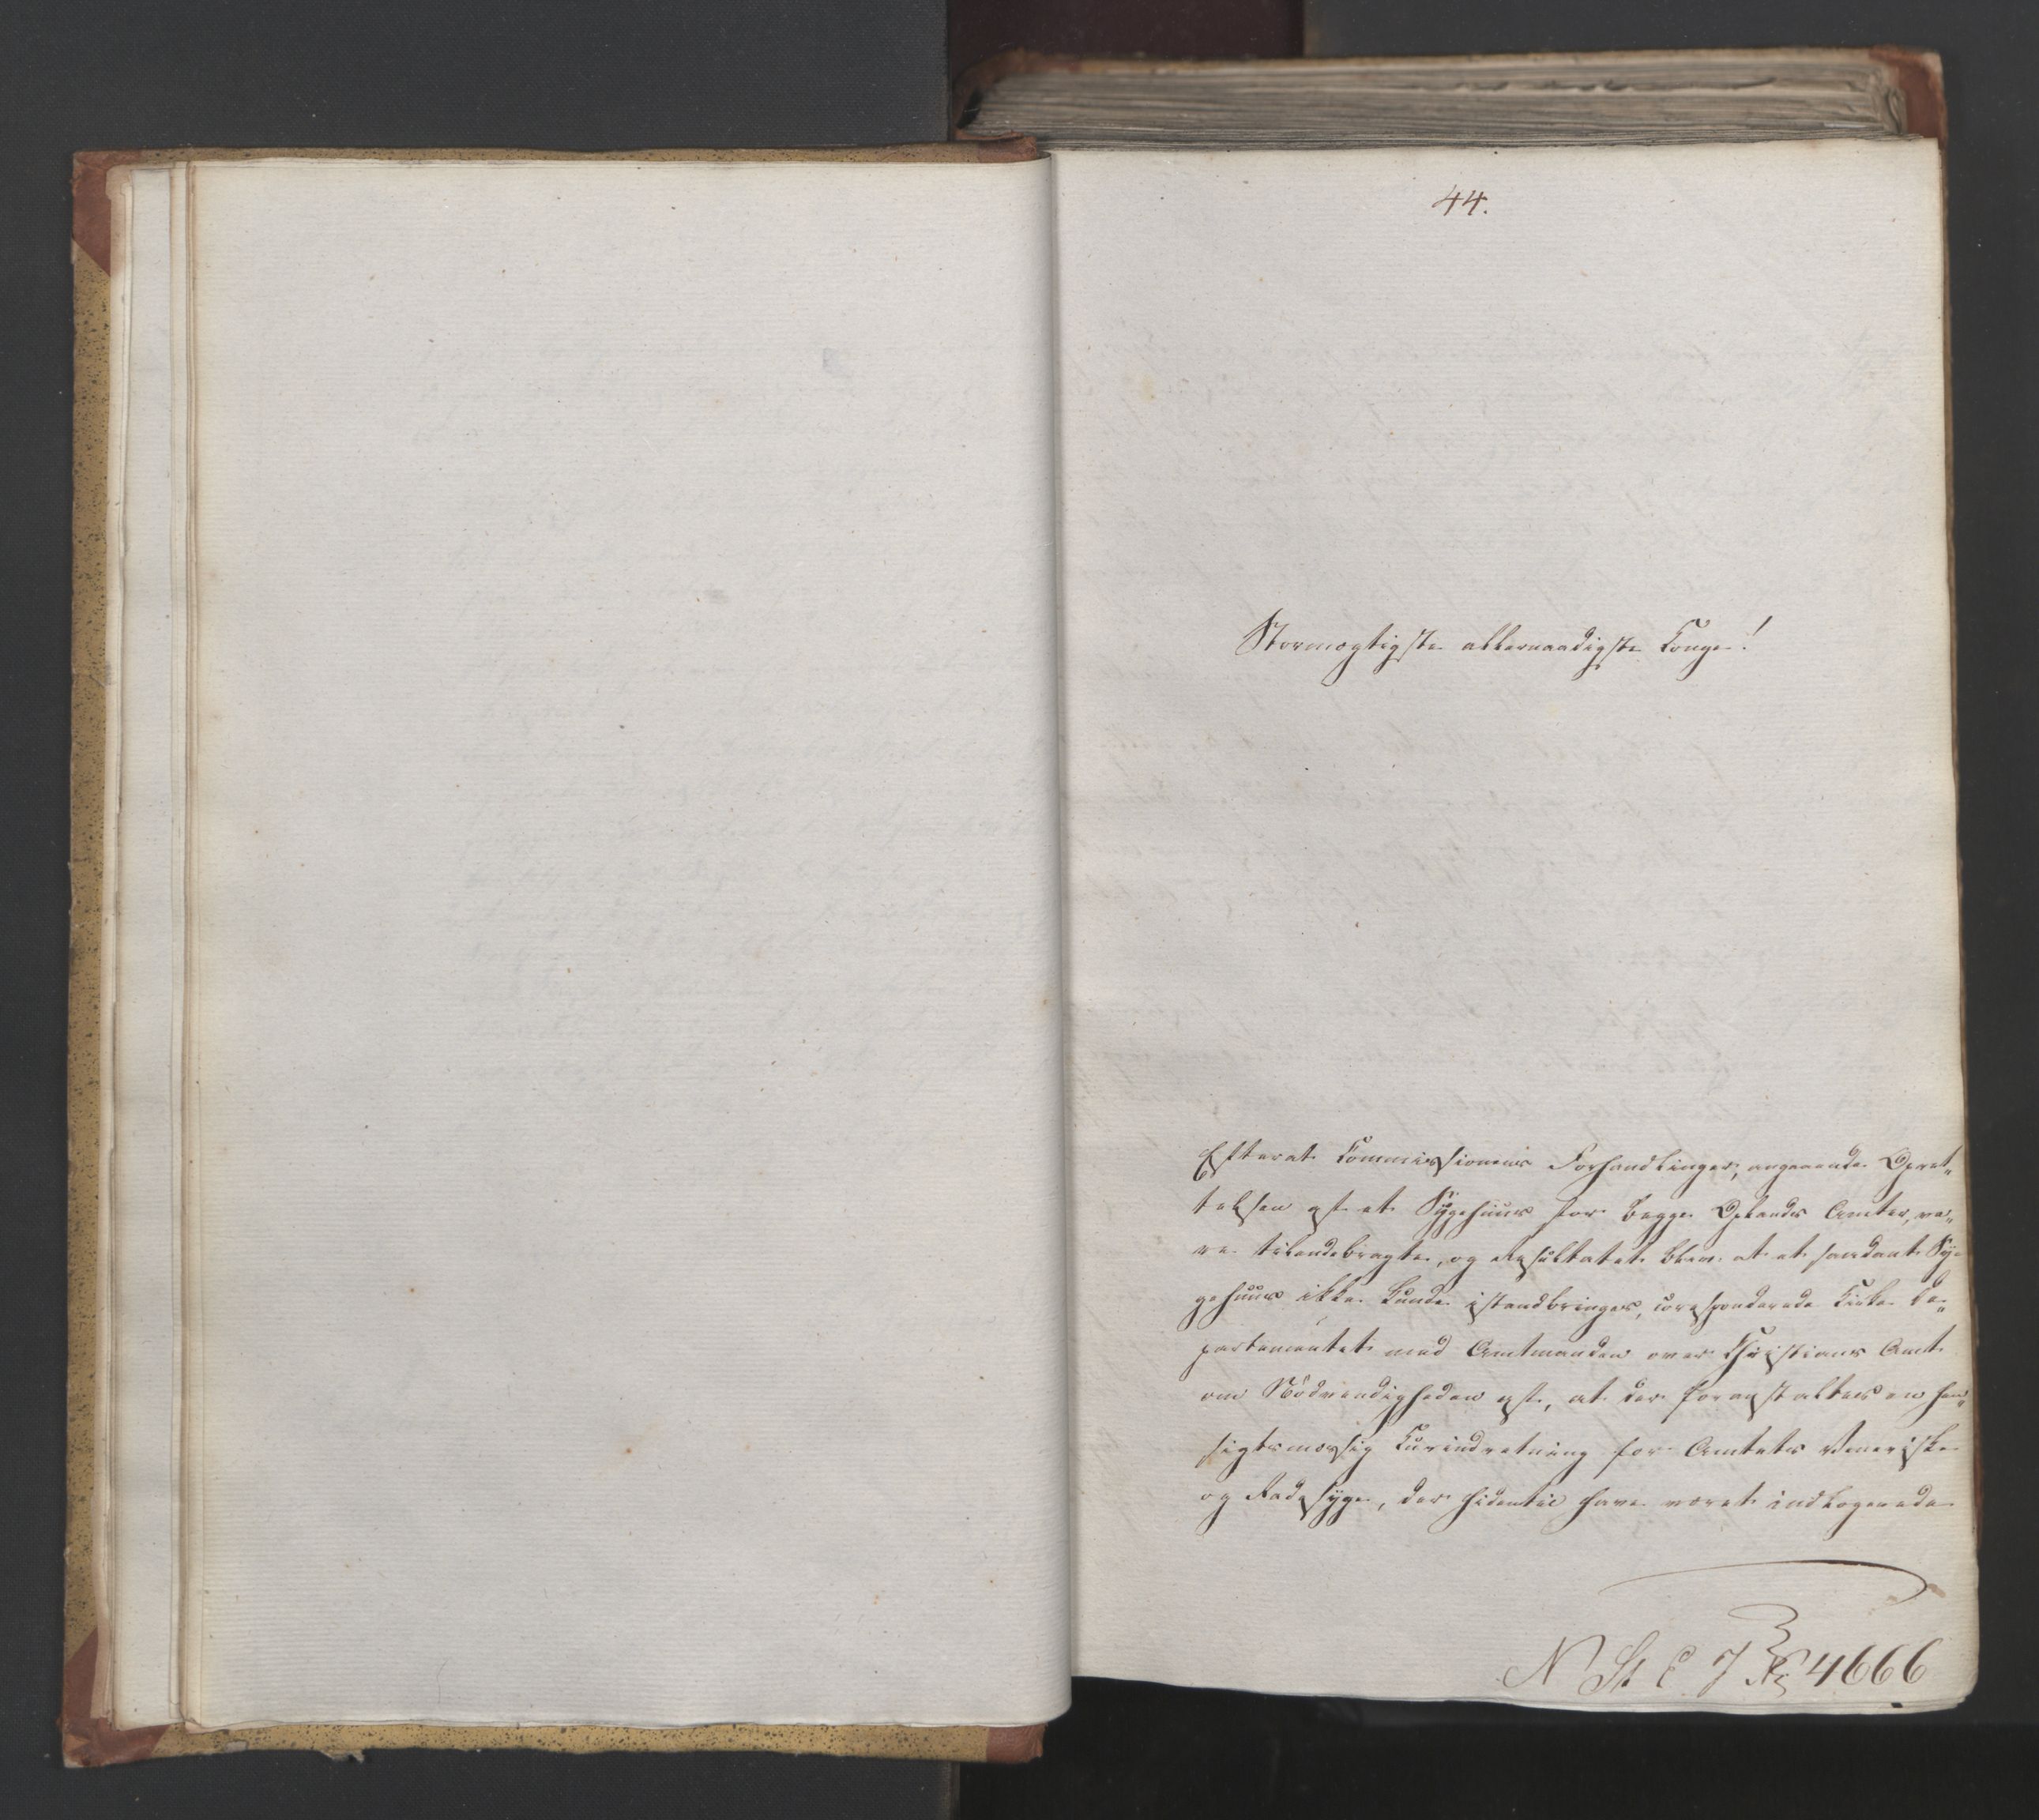 44.
Stormægtigste allernaadigste Konge!
Efterat Kommissionens Forhandlinger, angaaende Opret„
telsen af et Sÿgehuus for begge Oplands Amter, va„
re tilendebragte, og Resultatet blev at et saadant Sÿ„
gehuus ikke kunde istandbringes, corresponderede Kirke De„
partementet med Amtmanden over Christians Amt
om Nødvendigheden af, at der foranstaltes en hen„
sigtsmæssig Kurindretning for Amtets Veneriske
og Radesÿge, der hidentil have været indlogerede
N St E J No 4666